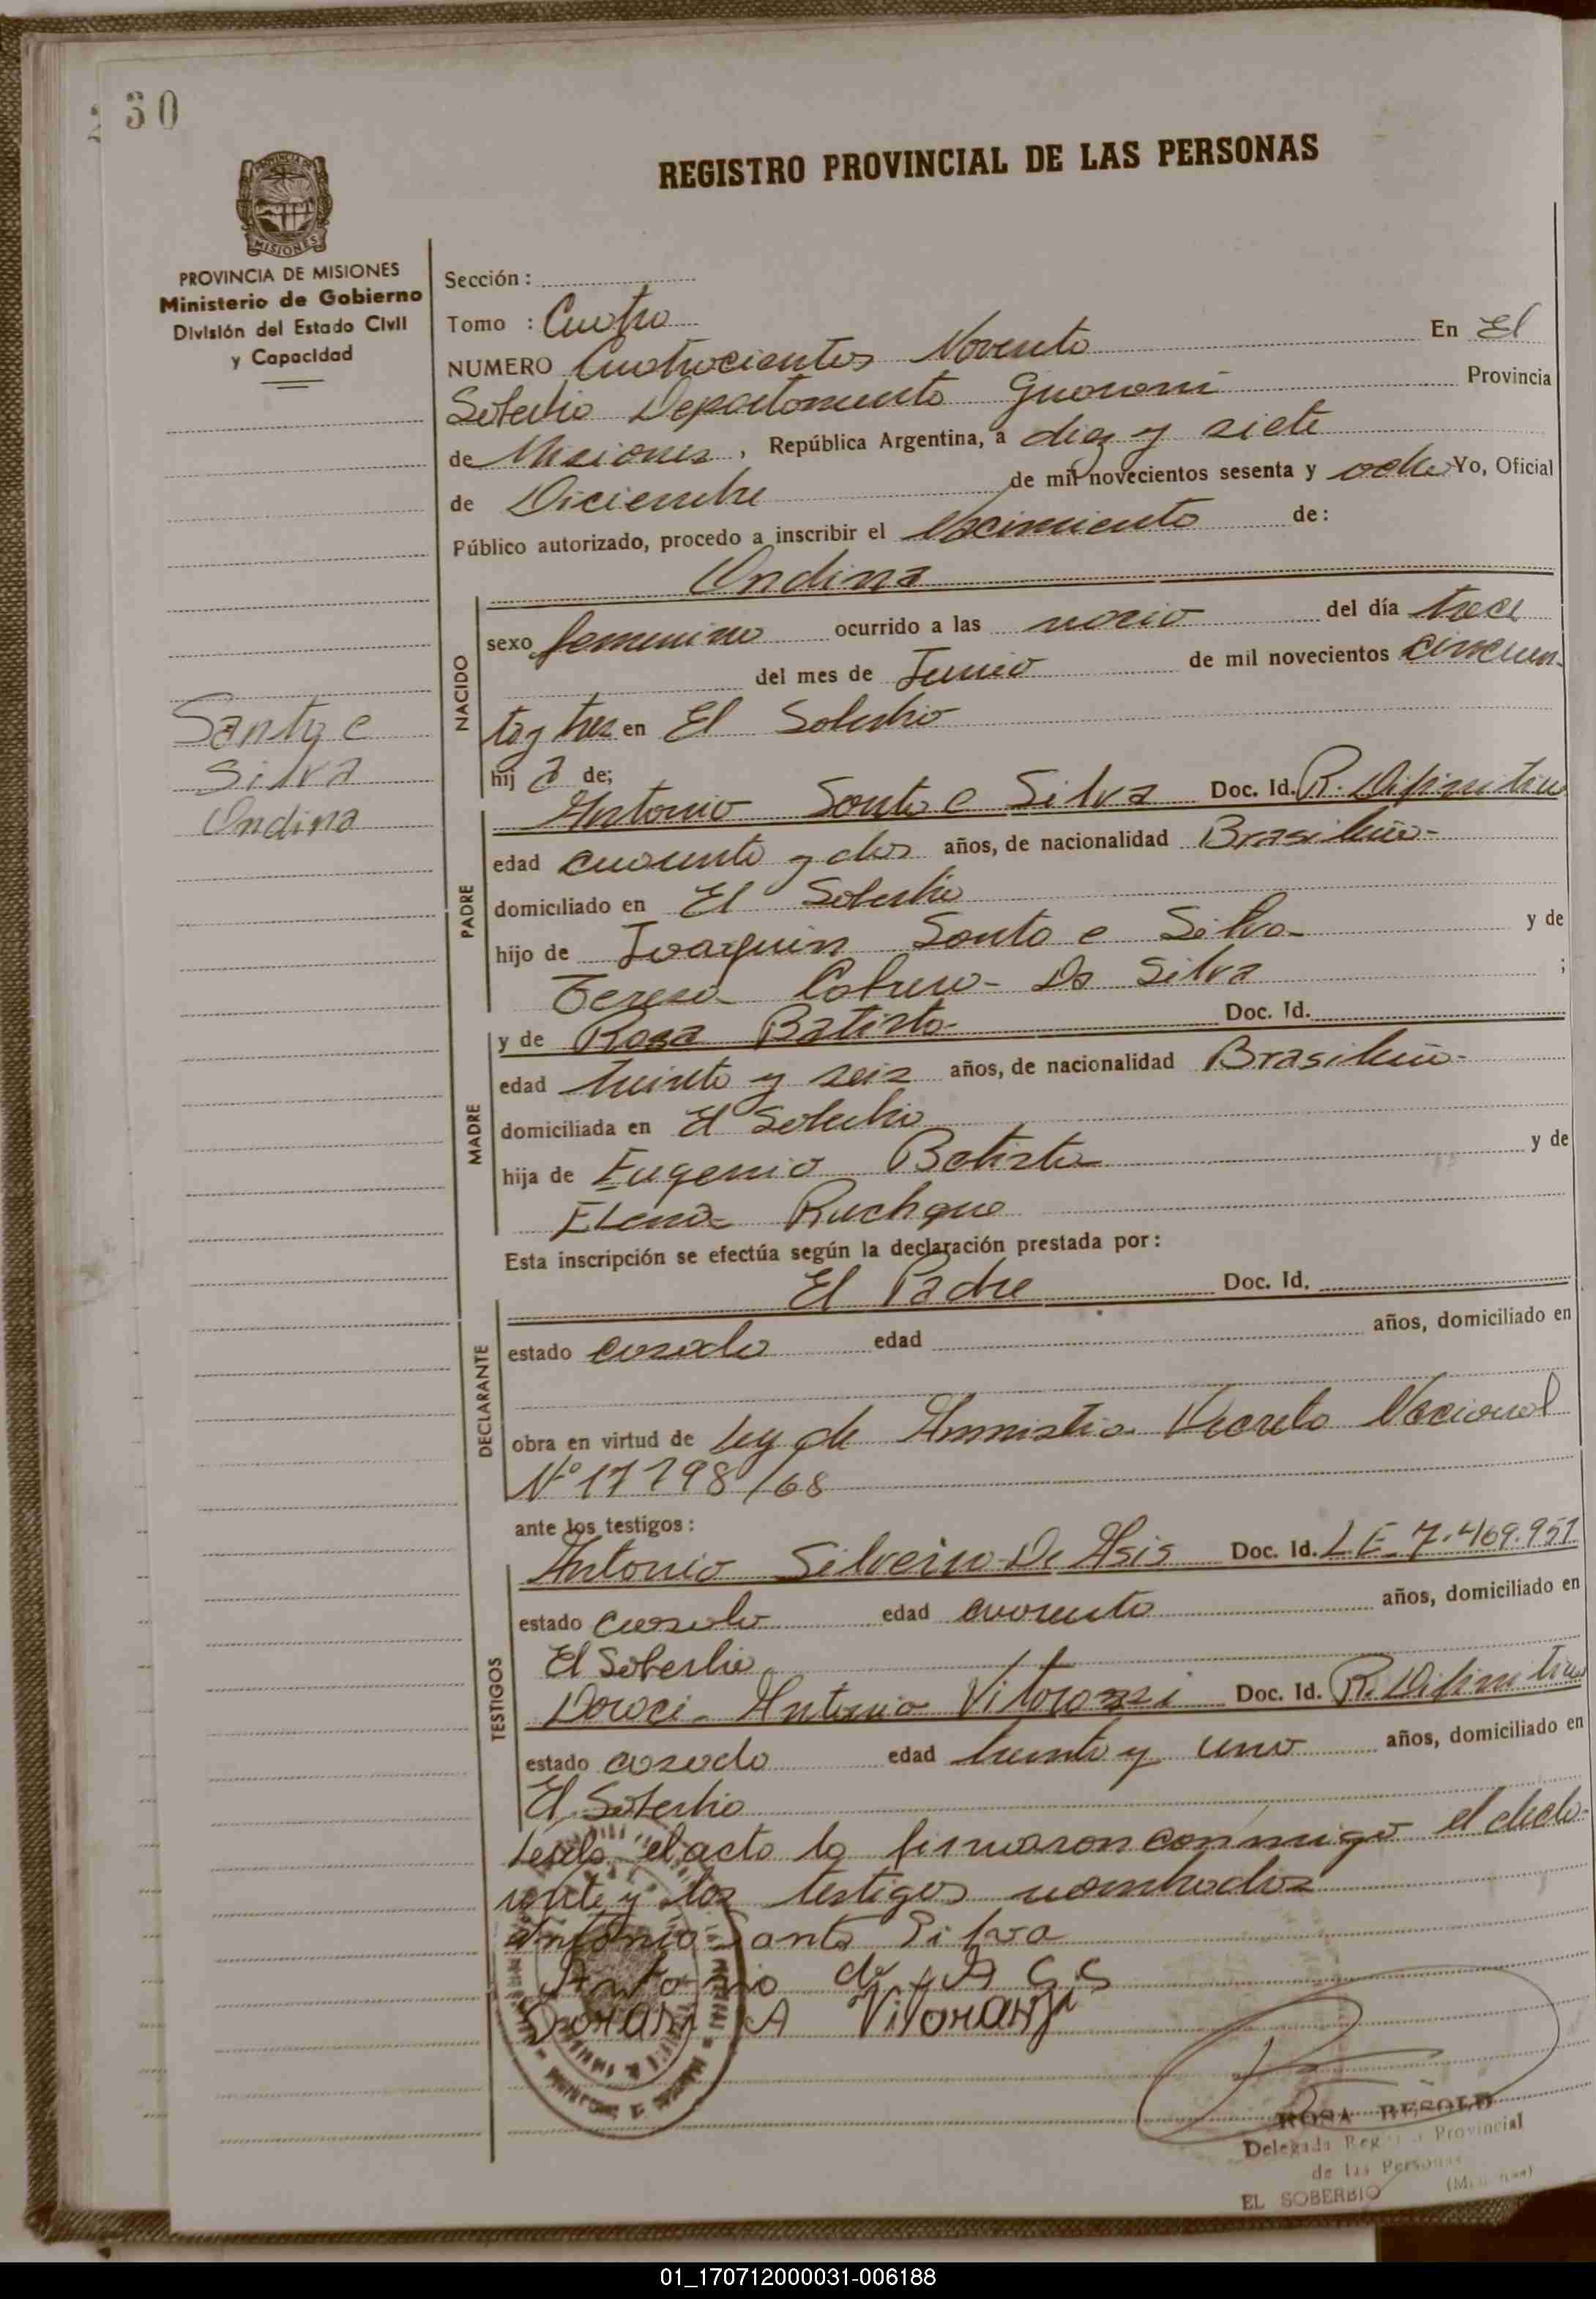 30
REGISTRO PROVINCIAL DE LAS PERSONAS
MISIONES
PROVINCIA DE MISIONES
Ministerio de Gobierno
División del Estado Civil
y Capacidad
Sección :
Tomo : Cuatro
NUMERO Cuatrocientos Noventa En El
Soberbio Departamento Guarani Provincia
de Misiones, República Argentina, a diez y siete
de Diciembre de mil novecientos sesenta y ocho Yo, Oficial
Público autorizado, procedo a inscribir el Nacimiento de:
Ondina
NACIDO
sexo femenino ocurrido a las del día trece
del mes de Junio de mil novecientos cincuen-
ta y tres en El Soberbio
hij a de;
Santo e
Silva
Ondina
PADRE
Antonio Santo e Silva Doc. Id. R. Difinitiva
edad cuarenta y dos años, de nacionalidad Brasileña-
domiciliado en El Soberbio
hijo de Joaquin Santo e Silva y de
Teresa Da Silva ;
MADRE
y de Rosa Batista Doc. Id.
edad treinta y seis años, de nacionalidad Brasileña-
domiciliada en El Soberbio
hija de Eugenio Batista y de
Elena Ruchque
Esta inscripción se efectúa según la declaración prestada por:
DECLARANTE
El Padre Doc. Id.
estado casado edad años, domiciliado en
obra en virtud de Ley de Amnistia Decreto Nacional
Nº 17798/68
ante los testigos:
TESTIGOS
Antonio De Asis Doc. Id. L E 7.469.951
estado casado edad cuarenta años, domiciliado en
El Soberbio
Antonio Vitorazzi Doc. Id. R. Difinitiva
estado casado edad treinta y uno años, domiciliado en
El Soberbio
Leida el acta la firmaron conmigo el decla-
rante y los testigos nombrados
Antonio Santo Silva
Antonio de
A Vitorazzi
ROSA RESOLD
Delegada Provincial
de las Personas
EL SOBERBIO
01_170712000031-006188